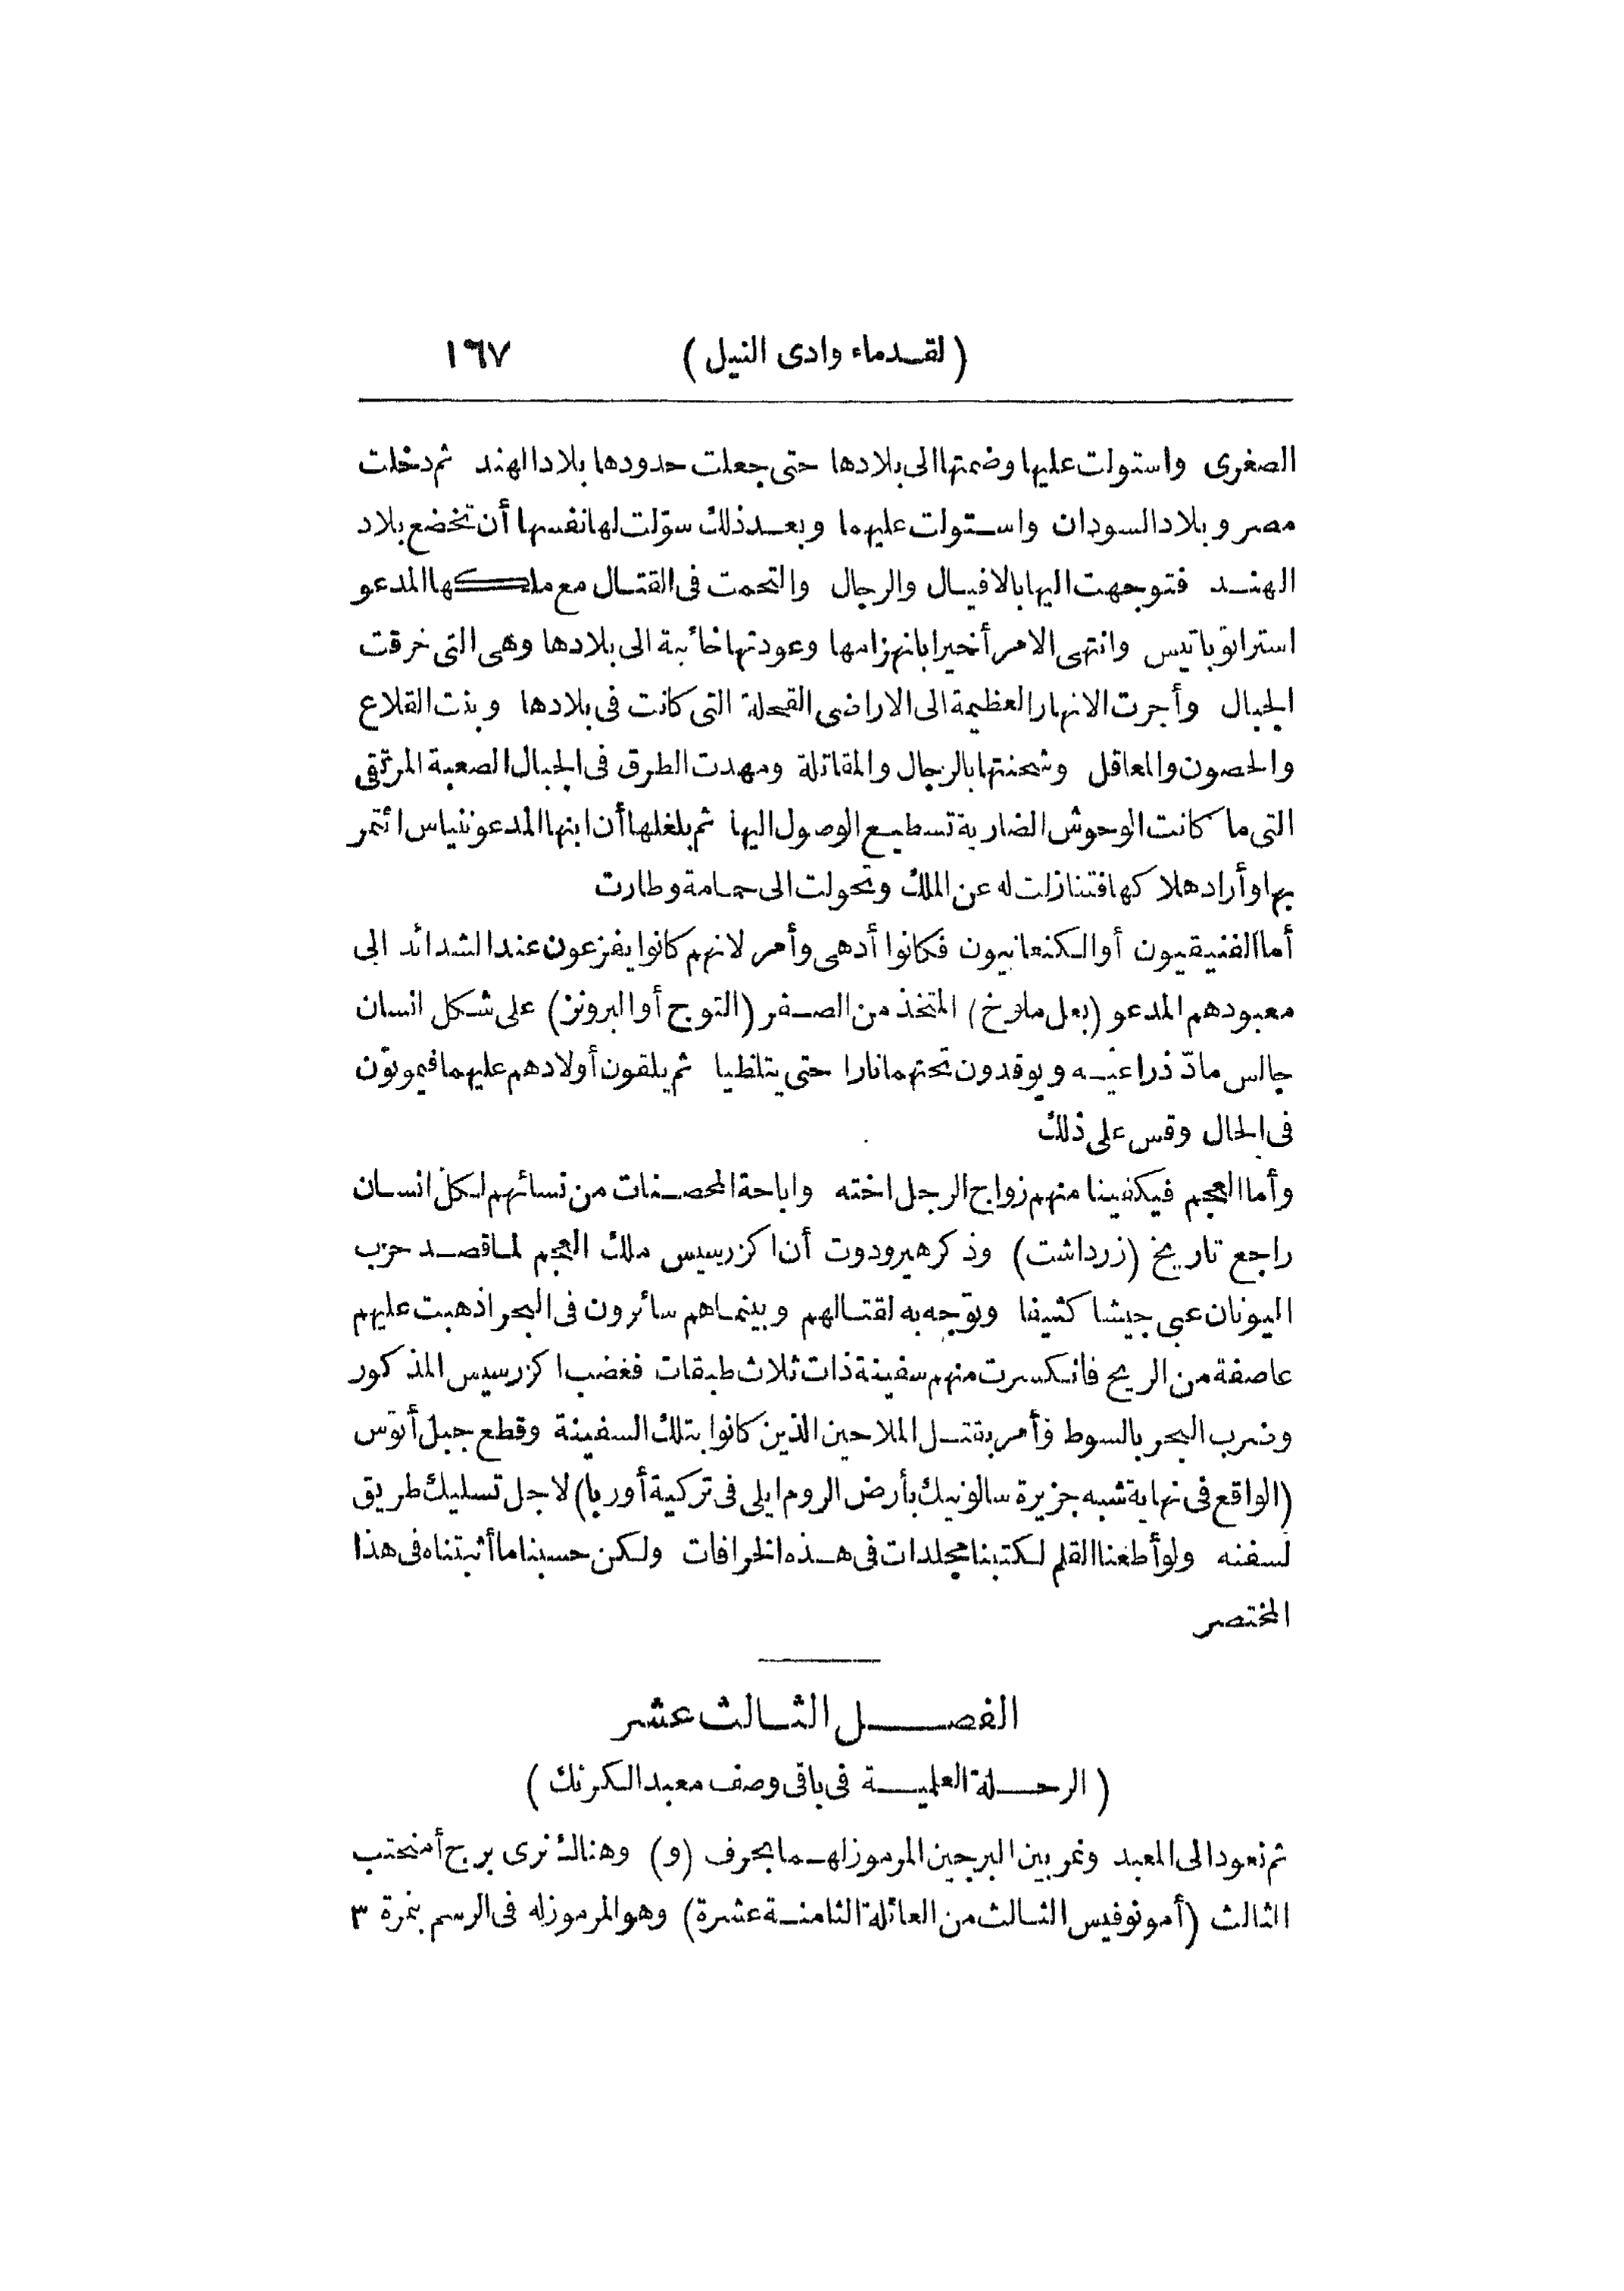 (لقدماء وادى النيل) ١٦٧
الصغرى واستولت عليها وضمتها الى بلادها حتى جعلت حدودها بلاد الهند ثم دخلت
مصر وبلاد السودان واستولت عليهما وبعد ذلك سوّلت لها نفسها أن تخضع بلاد
الهند فتوجهت اليها بالافيال والرجال والتحمت فى القتال مع ملكها المدعو
استراتوباتيس وانتهى الامر أخيرا بانهزامها وعودتها خائبة الى بلادها وهى التى خرقت
الجبال وأجرت الانهار العظيمة الى الاراضى القحلة التى كانت فى بلادها وبنت القلاع
والحصون والمعاقل وشحنتها بالرجال والمقاتلة ومهدت الطرق فى الجبال الصعبة المرتقى
التى ما كانت الوحوش الضارية تسطيع الوصول اليها ثم بلغلها أن ابنها المدعو ننياس ائتمر
بها وأراد هلاكها فتنازلت له عن الملك وتحولت الى حمامة وطارت
أما الفنيقيون أو الكنعانيون فكانوا أدهى وأمر لانهم كانوا يفزعون عند الشدائد الى
معبودهم المدعو (بعل ملوخ) المتخذ من الصفر (التوج أو البرونز) على شكل انسان
جالس مادّ ذراعيه ويوقدون تحتهما نارا حتى يتلظيا ثم يلقون أولادهم عليهما فيموتون
فى الحال وقس على ذلك
وأما العجم فيكفينا منهم زواج الرجل اخته واباحة المحصنات من نسائهم لكل انسان
راجع تاريخ (زرداشت) وذكر هيرودوت أن اكزرسيس ملك العجم لما قصد حرب
اليونان عبى جيشا كثيفا وتوجه به لقتالهم وبينماهم سائرون فى البحر اذ هبت عليهم
عاصفة من الريح فانكسرت منهم سفينة ذات ثلاث طبقات فغضب اكزرسيس المذكور
وضرب البحر بالسوط وأمر بقتل الملاحين الذين كانوا بتلك السفينة وقطع جبل أتوس
(الواقع فى نهاية شبه جزيرة سالونيك بأرض الروم ايلى فى تركية أوربا) لاجل تسليك طريق
لسفنه ولو أطعنا القلم لكتبنا مجلدات فى هذه الخرافات ولكن حسبنا ما أثبتناه فى هذا
المختصر
الفصل الثالث عشر
(الرحلة العلمية فى باقى وصف معبد الكرنك)
ثم نعود الى المعبد ونمر بين البرجين المرموز لهما بحرف (و) وهناك نرى برج أمنحتب
الثالث (أمونوفيس الثالث من العائلة الثامنة عشرة) وهو المرموز له فى الرسم بنمرة ٣